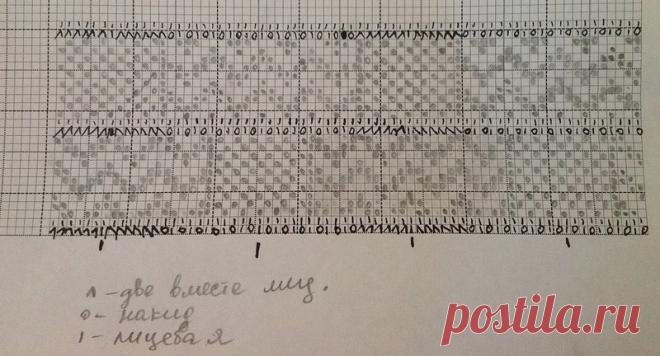 ʌ - две вместе лиц.
о - накид
ı - лицевая
postila.ru